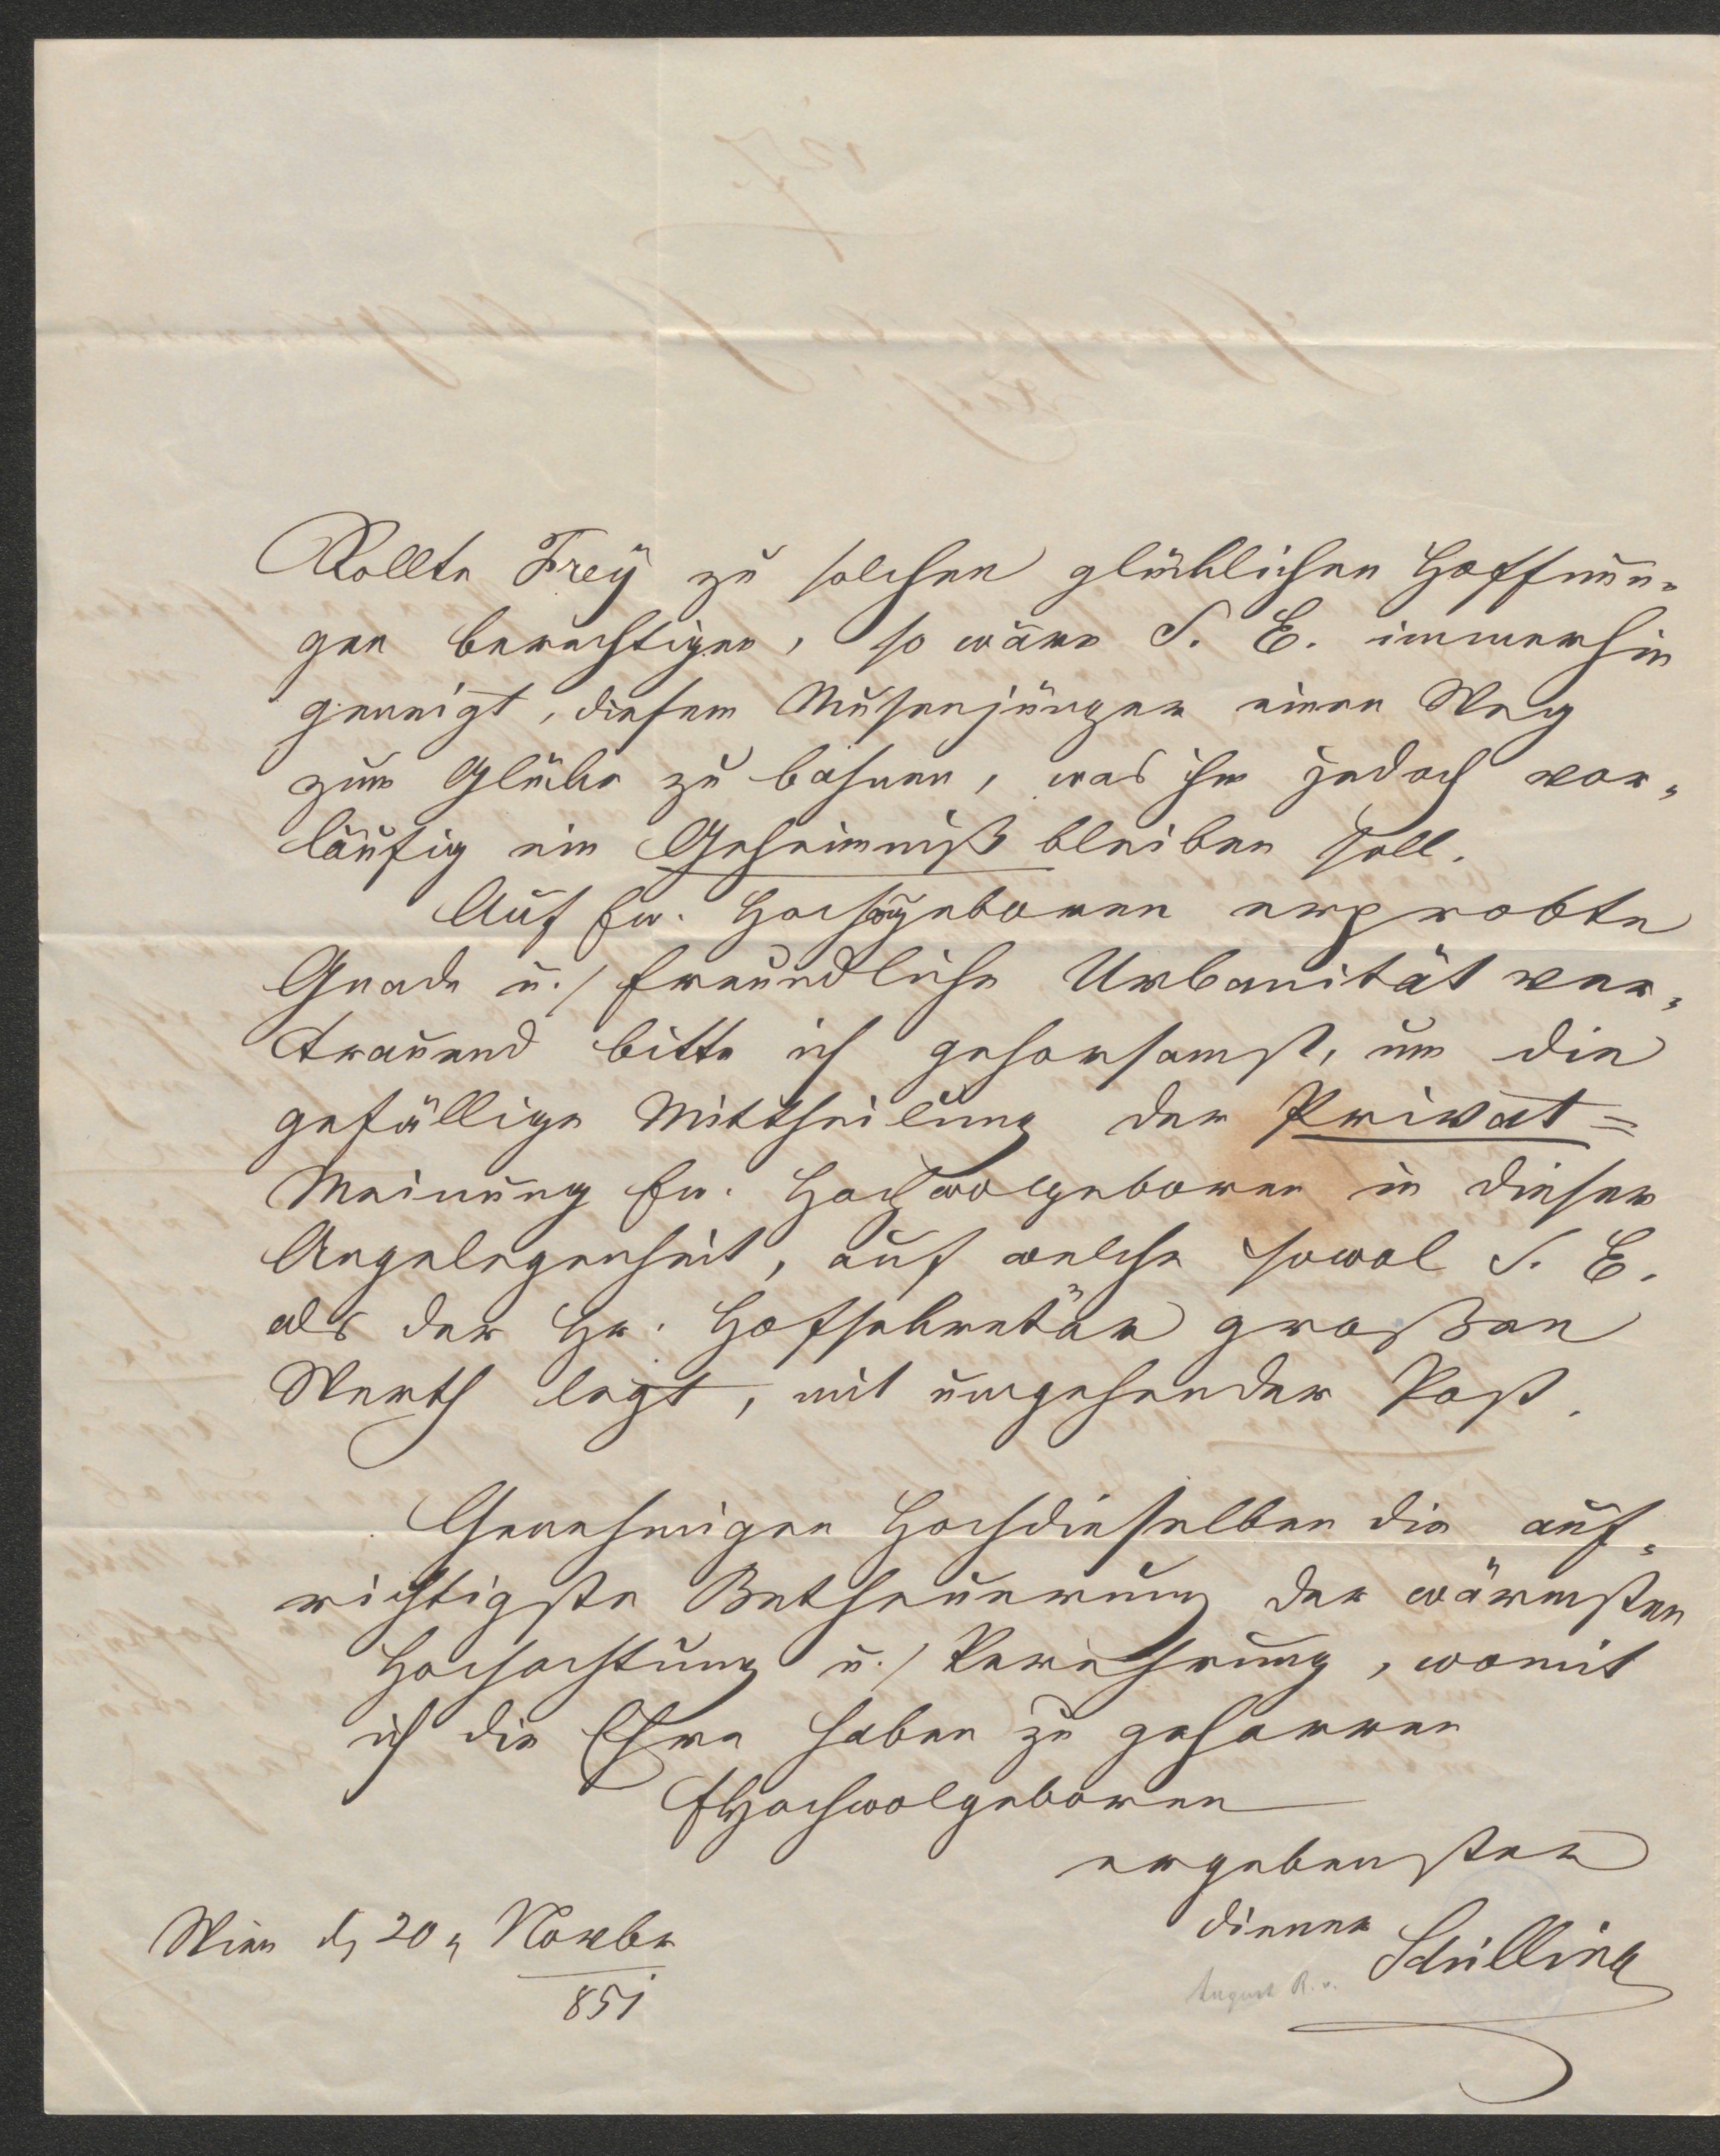 Sollte Frey zu solchen glücklichen Hoffnun-
gen berechtigen, so wäre S. E. immerhin
geneigt, diesem Musenjünger einen Weg
zum Glücke zu bahnen, was ihm jedoch vor-
läufig ein Geheimniß bleiben soll.
Auf Ew. Hochgeboren erprobte
Gnade u./ freundliche Urbanität ver-
trauend bitte ich gehorsamst, um die
gefällige Mittheilung der Privat=
Meinung Ew. Hochwolgeboren in dieser
Angelegenheit, auf welche sowol S. E.
als der Hr. Hofsekretär großen
Werth legt, mit umgehender Post.
Genehmigen Hochdieselben die auf-
richtigste Betheuerung der wärmsten
Hochachtung u./ Verehrung, womit
ich die Ehre habe zu geharren
E Hochwolgeboren
ergebenster
Diener Schilling
August R. v.
Wien d, 20, Novbr
851